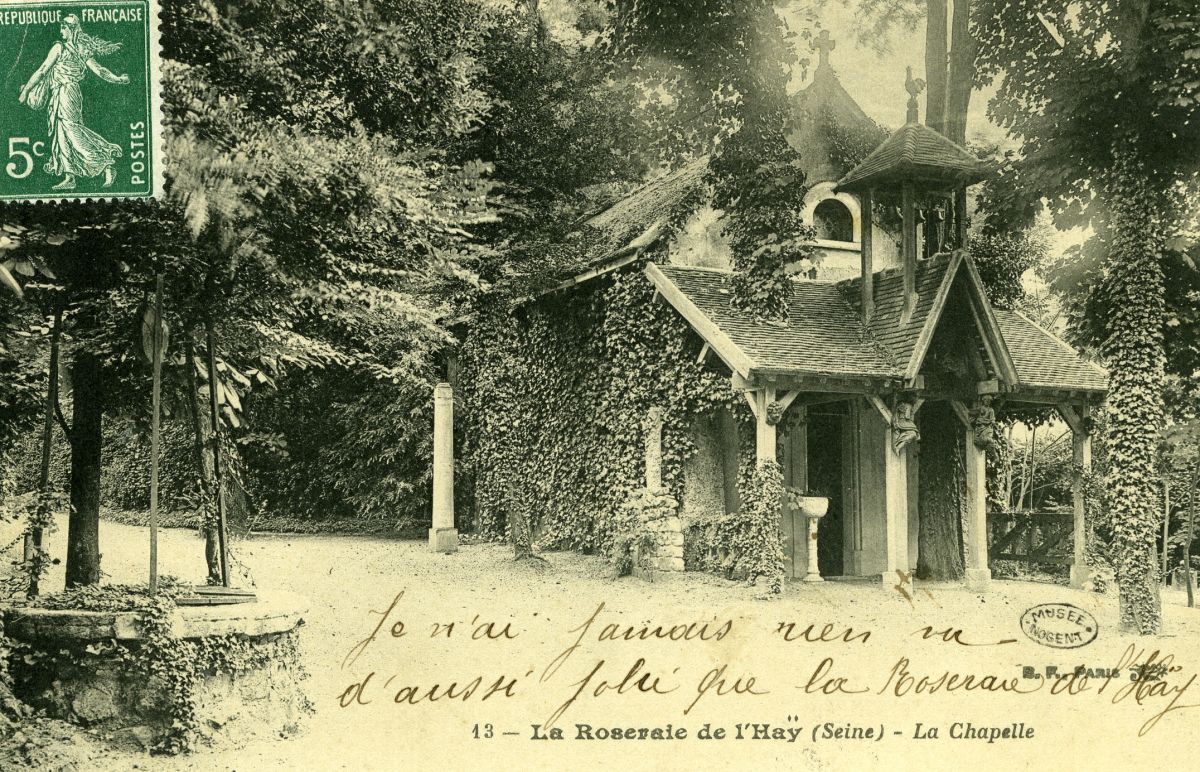 RÉPUBLIQUE FRANÇAISE
5c
POSTES
Je n'ai jamais rien vu
d'aussi Joli que la Roseraie de l'Haÿ
MUSÉE
NOGENT
B. F., PARIS
13 — La Roseraie de l'Haÿ (Seine) - La Chapelle